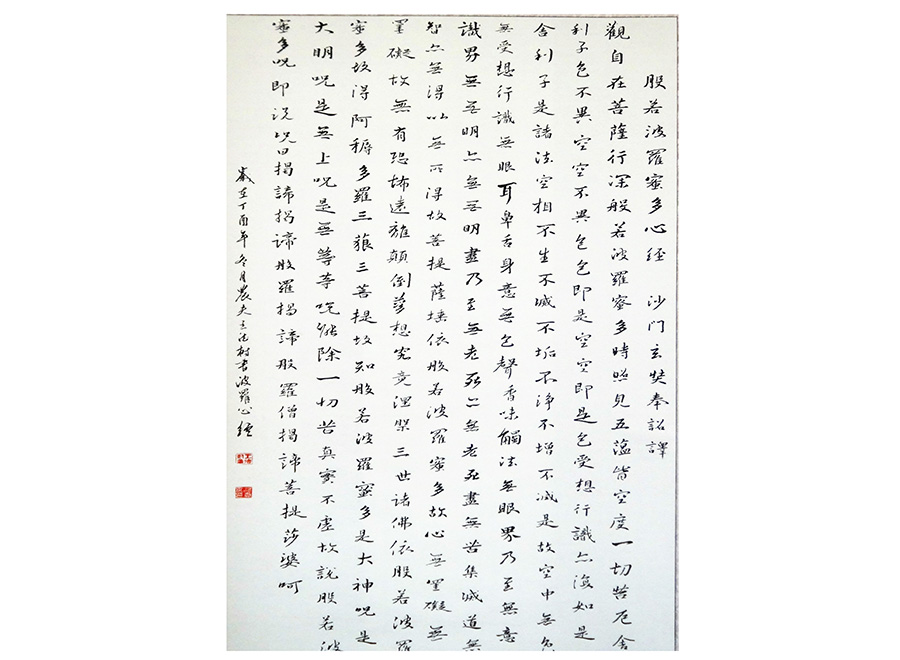 般若波羅蜜多心經 沙門玄奘奉詔譯
觀自在菩薩行深般若波羅蜜多時照見五蘊皆空度一切苦厄舍
利子色不異空空不異色色即是空空即是色受想行識亦復如是
舍利子是諸法空相不生不滅不垢不淨不增不減是故空中無色
無受想行識無眼耳鼻舌身意無色聲香味觸法無眼界乃至無意
識界無無明亦無無明盡乃至無老死亦無老死盡無苦集滅道無
智亦無得以無所得故菩提薩埵依般若波羅蜜多故心無罣礙無
罣礙故無有恐怖遠離顛倒夢想究竟涅槃三世諸佛依般若波羅
蜜多故得阿耨多羅三藐三菩提故知般若波羅蜜多是大神咒是
大明咒是無上咒是無等等咒能除一切苦真實不虛故說般若波
蜜多咒即說咒曰揭諦揭諦般羅揭諦般羅僧揭諦菩提莎婆呵
歲在丁酉年冬月農夫王法村書波羅心經